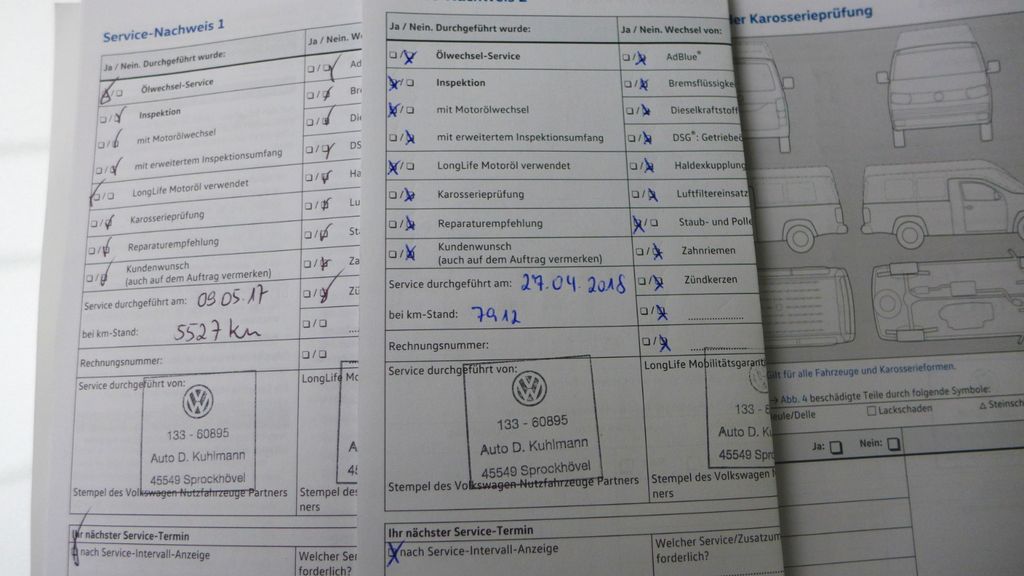 Service-Nachweis 1
Ja / Nein. Durchgeführt wurde:
Ja / Nein. We
Ölwechsel-Service
Ad
Inspektion
Br
mit Motorölwechsel
Die
mit erweitertem Inspektionsumfang
DS
LongLife Motoröl verwendet
Ha
Karosserieprüfung
Lu
Reparaturempfehlung
St
Kundenwunsch
(auch auf dem Auftrag vermerken)
Za
Service durchgeführt am: 09.05.17
Zü
bei km-Stand: 5527 km
Rechnungsnummer:
Service durchgeführt von:
LongLife Mo
133 - 60895
Auto D. Kuhlmann
45549 Sprockhövel
Stempel des Volkswagen Nutzfahrzeuge Partners
Stempel des
ners
Ihr nächster Service-Termin
nach Service-Intervall-Anzeige
Welcher Ser
forderlich?
Ja / Nein. Durchgeführt wurde:
Ja / Nein. Wechsel von:
Ölwechsel-Service
AdBlue®
Inspektion
Bremsflüssigke
mit Motorölwechsel
Dieselkraftstoff
mit erweitertem Inspektionsumfang
DSG®: Getriebeö
LongLife Motoröl verwendet
Haldexkupplung
Karosserieprüfung
Luftfiltereinsatz
Reparaturempfehlung
Staub- und Polle
Kundenwunsch
(auch auf dem Auftrag vermerken)
Zahnriemen
Service durchgeführt am: 27.04.2018
Zündkerzen
bei km-Stand: 7912
Rechnungsnummer:
Service durchgeführt von:
LongLife Mobilitätsgaranti
133 - 60895
Auto D. Kuhlmann
45549 Sprockhövel
133 - 6
Auto D. K
45549 Spro
Stempel des Volkswagen Nutzfahrzeuge Partners
Stempel des Volkswagen N
ners
Ihr nächster Service-Termin
nach Service-Intervall-Anzeige
Welcher Service/Zusatzum
forderlich?
der Karosserieprüfung
Gilt für alle Fahrzeuge und Karosserieformen.
→ Abb. 4 beschädigte Teile durch folgende Symbole:
eule/Delle
Lackschaden
Steinsch
Ja:
Nein: